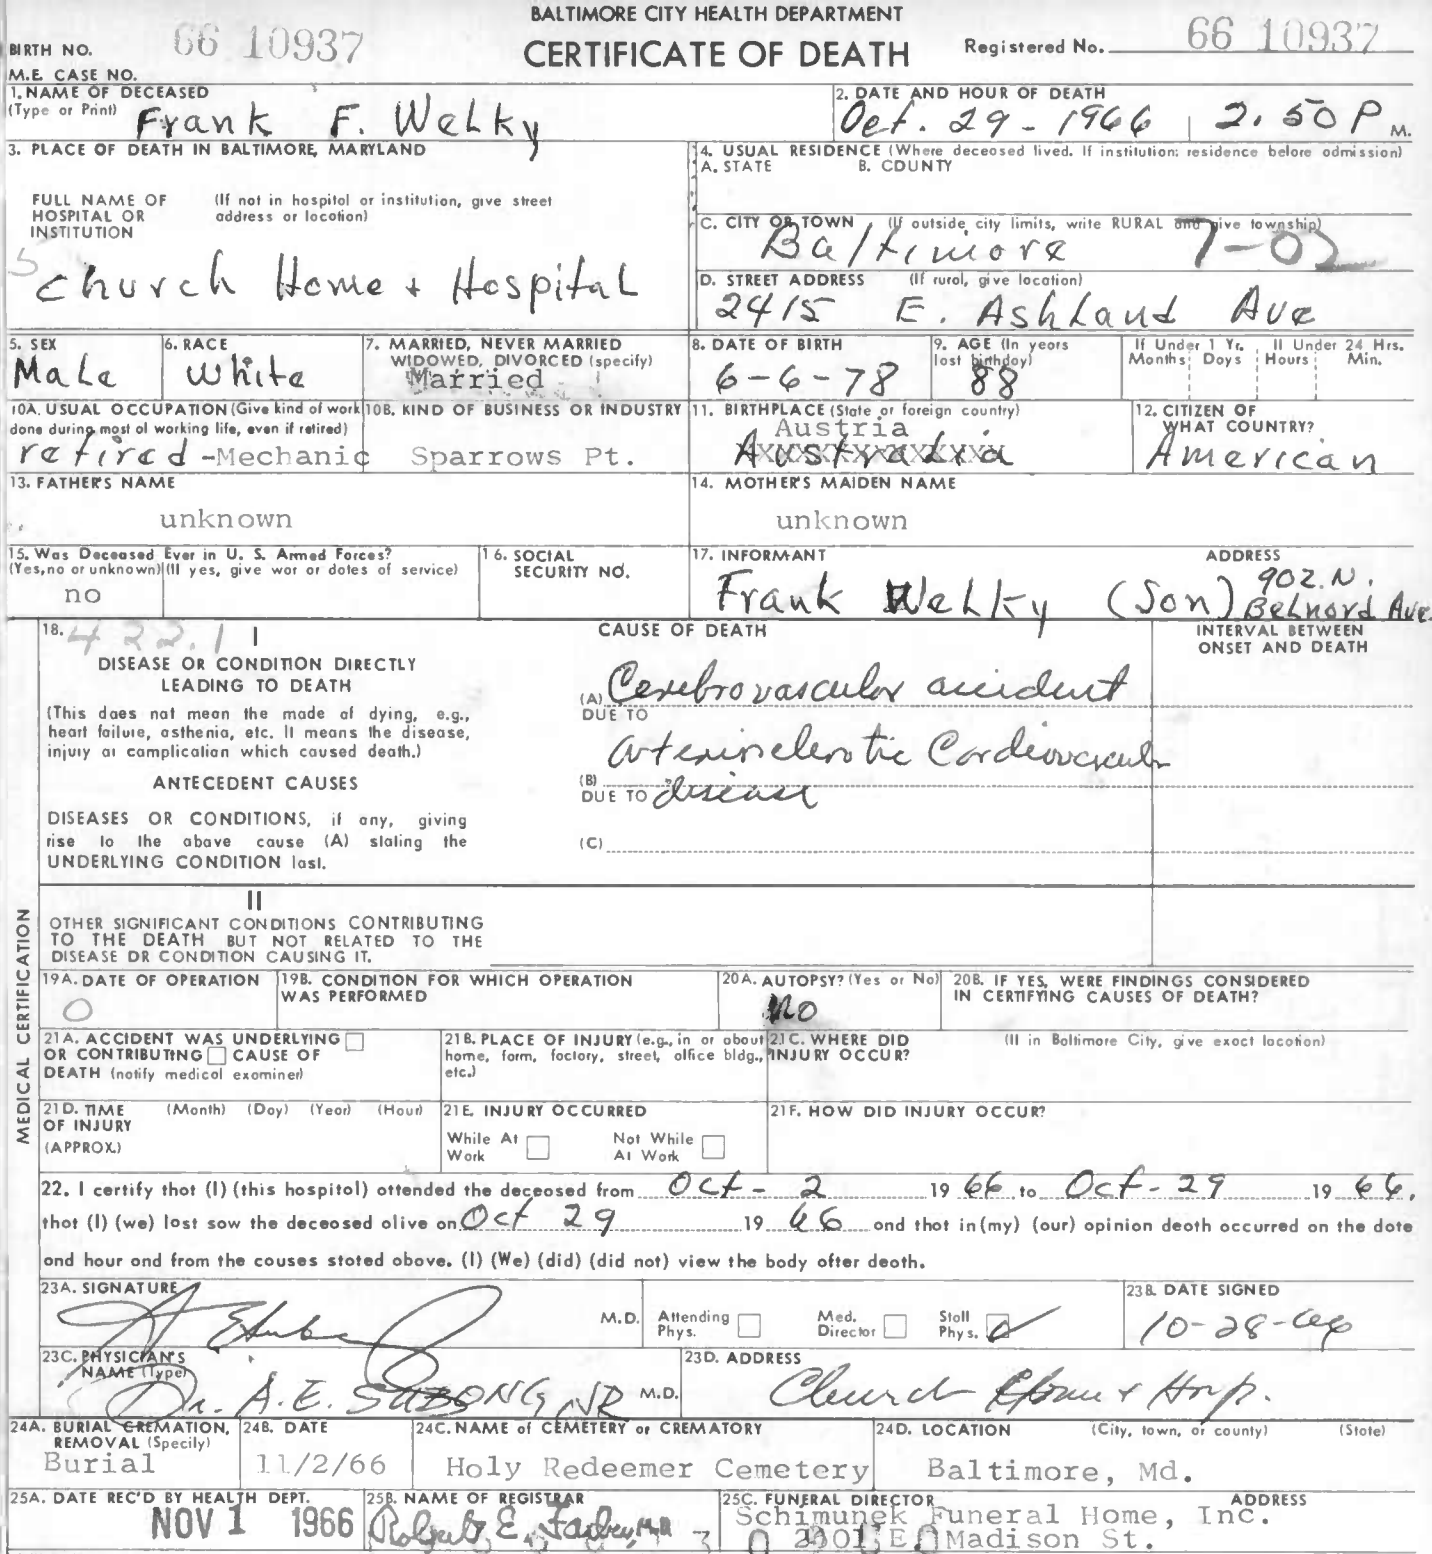 BALTIMORE CITY HEALTH DEPARTMENT
BIRTH NO. 66 10937 CERTIFICATE OF DEATH Registered No. 66 10937
M.E. CASE NO.
1. NAME OF DECEASED
(Type or Print) Frank F. Welky
2. DATE AND HOUR OF DEATH
Oct. 29 - 1966 2.50 P M.
3. PLACE OF DEATH IN BALTIMORE, MARYLAND
FULL NAME OF HOSPITAL OR INSTITUTION (If not in hospital or institution, give street address or location)
5
Church Home + Hospital
4. USUAL RESIDENCE (Where deceased lived. If institution: residence before admission)
A. STATE B. COUNTY
C. CITY OR TOWN (If outside city limits, write RURAL and give township)
Baltimore 7-02
D. STREET ADDRESS (If rural, give location)
2415 E. Ashland Ave
5. SEX
Male
6. RACE
White
7. MARRIED, NEVER MARRIED
WIDOWED, DIVORCED (specify)
Married
8. DATE OF BIRTH
6-6-78
9. AGE (In years last birthday)
88
If Under 1 Yr. Months Days
If Under 24 Hrs. Hours Min.
10A. USUAL OCCUPATION (Give kind of work
done during most of working life, even if retired)
retired - Mechanic
10B. KIND OF BUSINESS OR INDUSTRY
Sparrows Pt.
11. BIRTHPLACE (State or foreign country)
Austria
Australia
12. CITIZEN OF
WHAT COUNTRY?
American
13. FATHER'S NAME
unknown
14. MOTHER'S MAIDEN NAME
unknown
15. Was Deceased Ever in U. S. Armed Forces?
(Yes, no or unknown) (If yes, give war or dates of service)
no
16. SOCIAL
SECURITY NO.
17. INFORMANT ADDRESS
Frank Welky (Son) 902 N.
Belnord Ave.
18. 422.1 I
DISEASE OR CONDITION DIRECTLY
LEADING TO DEATH
(This does not mean the mode of dying, e.g.,
heart failure, asthenia, etc. It means the disease,
injury or complication which caused death.)
ANTECEDENT CAUSES
DISEASES OR CONDITIONS, if any, giving
rise to the above cause (A) stating the
UNDERLYING CONDITION last.
CAUSE OF DEATH
(A) Cerebrovascular accident
DUE TO
Arteriosclerotic Cardiovascular
(B)
DUE TO disease
(C)
INTERVAL BETWEEN
ONSET AND DEATH
II
OTHER SIGNIFICANT CONDITIONS CONTRIBUTING
TO THE DEATH BUT NOT RELATED TO THE
DISEASE OR CONDITION CAUSING IT.
MEDICAL CERTIFICATION
19A. DATE OF OPERATION
0
19B. CONDITION FOR WHICH OPERATION
WAS PERFORMED
20A. AUTOPSY? (Yes or No)
No
20B. IF YES, WERE FINDINGS CONSIDERED
IN CERTIFYING CAUSES OF DEATH?
21A. ACCIDENT WAS UNDERLYING
OR CONTRIBUTING CAUSE OF
DEATH (notify medical examiner)
21B. PLACE OF INJURY (e.g., in or about
home, farm, factory, street, office bldg.,
etc.)
21C. WHERE DID (If in Baltimore City, give exact location)
INJURY OCCUR?
21D. TIME (Month) (Day) (Year) (Hour)
OF INJURY
(APPROX.)
21E. INJURY OCCURRED
While At Work Not While At Work
21F. HOW DID INJURY OCCUR?
22. I certify that (I) (this hospital) attended the deceased from Oct - 2 19 66 to Oct - 29 19 66,
that (I) (we) last saw the deceased alive on Oct 29 19 66 and that in (my) (our) opinion death occurred on the date
and hour and from the causes stated above. (I) (We) (did) (did not) view the body after death.
23A. SIGNATURE
M.D. Attending Phys. Med. Director Staff Phys.
23B. DATE SIGNED
10-28-66
23C. PHYSICIAN'S
NAME (Type)
Dr. A. E. SUBONG, JR M.D.
23D. ADDRESS
Church Home + Hosp.
24A. BURIAL CREMATION,
REMOVAL (Specify)
Burial
24B. DATE
11/2/66
24C. NAME of CEMETERY or CREMATORY
Holy Redeemer Cemetery
24D. LOCATION (City, town, or county) (State)
Baltimore, Md.
25A. DATE REC'D BY HEALTH DEPT.
NOV 1 1966
25B. NAME OF REGISTRAR
Robert E. Farber, M.D.
25C. FUNERAL DIRECTOR ADDRESS
Schimunek Funeral Home, Inc.
E. Madison St.